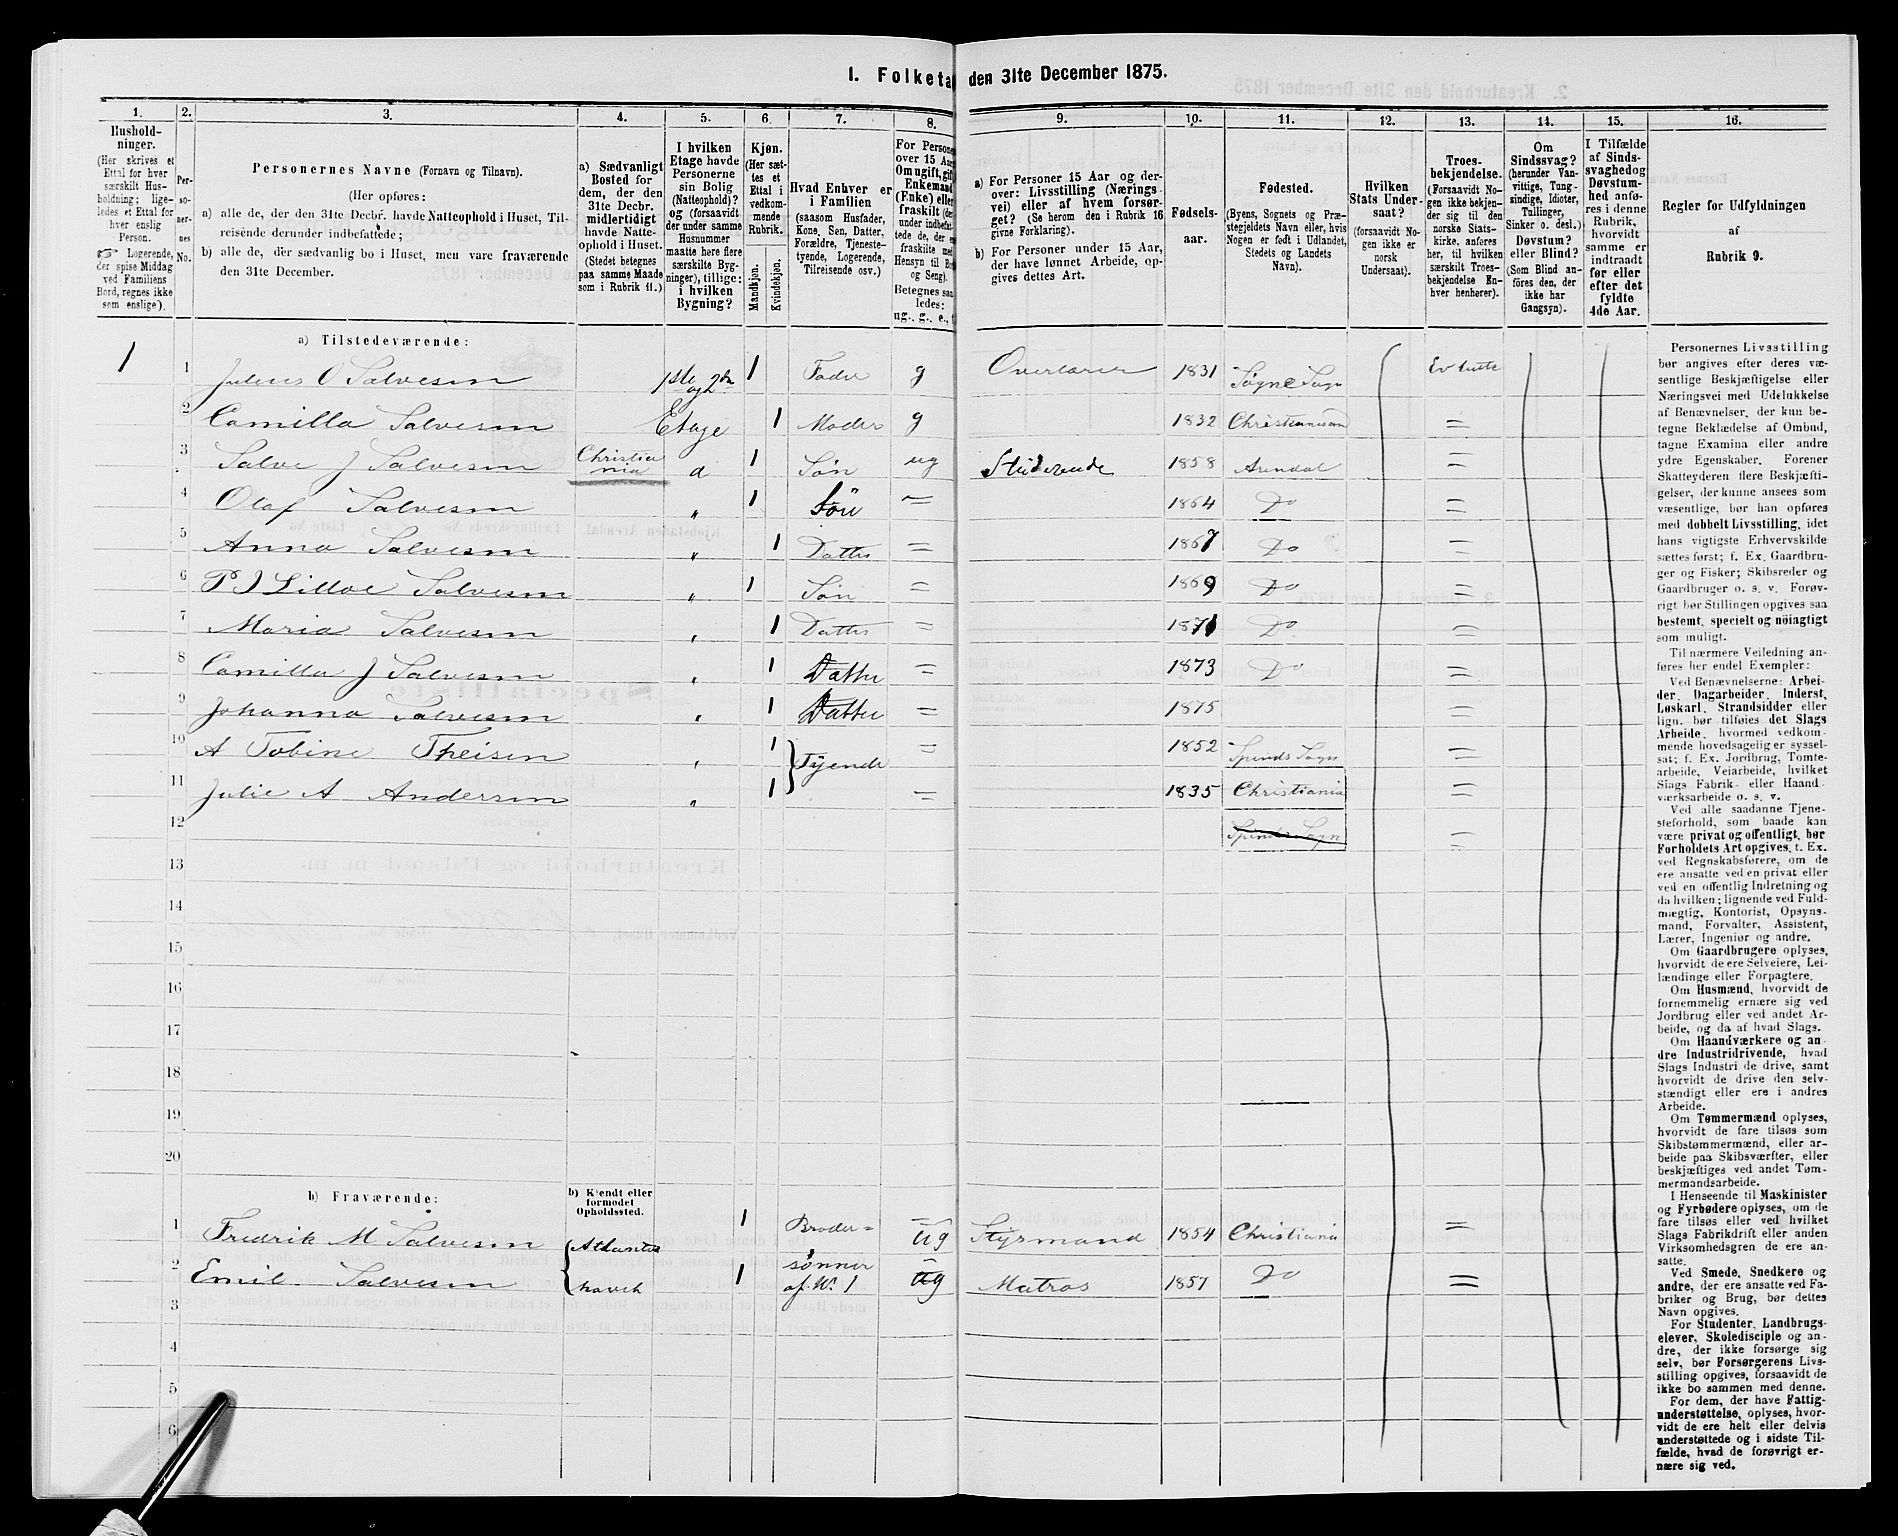 1. Folketæ den 31te December 1875.
1. 2. 3. 4. 5. 6. 7. 8. 9. 10. 11. 12. 13. 14. 15. 16.
Hushold-
ninger.
(Her skrives et
Ettal for hver
særskilt Hus-
holdning; lige-
ledes et Ettal for
hver enslig
Person.
☞ Logerende,
der spise Middag
ved Familiens
Bord, regnes ikke
som enslige).
Per-
so-
ner-
nes
No.
Personernes Navne (Fornavn og Tilnavn).
(Her opføres:
a) alle de, der den 31te Decbr. havde Natteophold i Huset, Til-
reisende derunder indbefattede;
b) alle de, der sædvanlig bo i Huset, men vare fraværende
den 31te December.
a) Sædvanligt
Bosted for
dem, der den
31te Decbr.
midlertidigt
havde Natte-
ophold i Huset.
(Stedet betegnes
paa samme Maade
som i Rubrik 11.)
I hvilken
Etage havde
Personerne
sin Bolig
(Natteophold)?
og (forsaavidt
der under samme
Husnummer
maatte høre flere
særskilte Byg-
ninger), tillige:
i hvilken
Bygning?
Kjøn.
(Her sæt-
tes et
Ettal i
vedkom-
mende
Rubrik.
Mandkjøn.
Kvindekjøn.
Hvad Enhver er
i Familien
(saasom Husfader,
Kone, Søn, Datter,
Forældre, Tjeneste-
tyende, Logerende,
Tilreisende osv.)
For Persone
over 15 Aar
Om ugift, gif
Enkemand
(Enke) elle
fraskilt (de
under indbefat
tede de, der e
fraskilte med
Hensyn til Bo
og Seng).
Betegnes saa
ledes:
ug., g., e.,
a) For Personer 15 Aar og der-
over: Livsstilling (Nærings-
vei) eller af hvem forsør-
get? (Se herom den i Rubrik 16
givne Forklaring).
b) For Personer under 15 Aar,
der have lønnet Arbeide, op-
gives dettes Art.
Fødsels-
aar.
Fødested.
(Byens, Sognets og Præ-
stegjeldets Navn eller, hvis
Nogen er født i Udlandet,
Stedets og Landets
Navn).
Hvilken
Stats Under-
saat?
(forsaavidt No-
gen ikke er
norsk
Undersaat).
Troes-
bekjendelse.
(Forsaavidt No-
gen ikke bekjen-
der sig til den
norske Stats-
kirke, anføres
her, til hvilken
særskilt Troes-
bekjendelse En-
hver henhører).
Om
Sindssvag?
(herunder Van-
vittige, Tung-
sindige, Idioter,
Tullinger,
Sinker o. desl.)
Døvstum?
eller Blind?
(Som Blind an-
føres den, der
ikke har
Gangsyn).
I Tilfælde
af Sinds-
svaghed og
Døvstum-
hed anfø-
res i denne
Rubrik,
hvorvidt
samme er
indtraadt
før eller
efter det
fyldte
4de Aar.
Regler for Udfyldningen
af
Rubrik 9.
a) Tilstedeværende:
1
1 Julius O Salvesen 1ste og 2den 1 Fader g Overlærer 1831 Søgne Sogn Ev luth
2 Camilla Salvesen Etage 1 Moder g 1832 Christiansand =
3 Salve J Salvesen Christiania d 1 Søn ug Studerende 1858 Arendal =
4 Olaf Salvesen " 1 Søn = 1864 Do =
5 Anna Salvesen " 1 Datter = 1867 Do =
6 P J Lilloe Salvesen " 1 Søn = 1869 Do =
7 Maria Salvesen " 1 Datter = 1871 Do =
8 Camilla J Salvesen " 1 Datter = 1873 Do =
9 Johanna Salvesen " 1 Datter = 1875 =
10 A Tobine Theisen " 1 Tyende = 1852 Spinds Sogn =
11 Julie A Andersen " 1 = 1835 Christiania =
12 Spinds Sogn =
13
14
15
16
17
18
19
20
b) Fraværende:
b) Kjendt eller
formodet
Opholdssted.
1 Fredrik M Salvesen Atlanter 1 Broder= ug Styrmand 1854 Christiania =
2 Emil Salvesen havet 1 sønner af No. 1 ug Matros 1857 Do =
3
4
5
6
Personernes Livsstilling
bør angives efter deres væ-
sentlige Beskjæftigelse eller
Næringsvei med Udelukkelse
af Benævnelser, der kun be-
tegne Beklædelse af Ombud,
tagne Examina eller andre
ydre Egenskaber. Forener
Skatteyderen flere Beskjæfti-
gelser, der kunne ansees som
væsentlige, bør han opføres
med dobbelt Livsstilling, idet
hans vigtigste Erhvervskilde
sættes først; f. Ex. Gaardbru-
ger og Fisker; Skibsreder og
Gaardbruger o. s. v. Forøv-
rigt bør Stillingen opgives saa
bestemt, specielt og nøiagtigt
som muligt.
Til nærmere Veiledning an-
føres her endel Exempler:
Ved Benævnelserne: Arbei-
der, Dagarbeider, Inderst,
Løskarl, Strandsidder eller
lign. bør tilføies det Slags
Arbeide, hvormed vedkom-
mende hovedsagelig er syssel-
sat; f. Ex. Jordbrug, Tomte-
arbeide, Veiarbeide, hvilket
Slags Fabrik- eller Haand-
værksarbeide o. s. v.
Ved alle saadanne Tjene-
steforhold, som baade kan
være privat og offentligt, bør
Forholdets Art opgives, t. Ex.
ved Regnskabsførere, om de
ere ansatte ved en privat eller
ved en offentlig Indretning og
da hvilken; lignende ved Fuld-
mægtig, Kontorist, Opsyns-
mand, Forvalter, Assistent,
Lærer, Ingeniør og andre.
Om Gaardbrugere oplyses,
hvorvidt de ere Selveiere, Lei-
lændinge eller Forpagtere.
Om Husmænd, hvorvidt de
fornemmelig ernære sig ved
Jordbrug eller ved andet Ar-
beide, og da af hvad Slags.
Om Haandværkere og an-
dre Industridrivende, hvad
Slags Industri de drive, samt
hvorvidt de drive den selv-
stændigt eller ere i andres
Arbeide.
Om Tømmermænd oplyses,
hvorvidt de fare tilsøs som
Skibstømmermænd, eller ar-
beide paa Skibsværfter, eller
beskjæftiges ved andet Tøm-
mermandsarbeide.
I Henseende til Maskinister
og Fyrbødere oplyses, om de
fare tilsøs eller ved hvilket
Slags Fabrikdrift eller anden
Virksomhedsgren de ere an-
satte.
Ved Smede, Snedkere og
andre, der ere ansatte ved Fa-
briker og Brug, bør dettes
Navn opgives.
For Studenter, Landbrugs-
elever, Skoledisciple og an-
dre, der ikke forsørge sig
selv, bør Forsørgerens Livs-
stilling opgives, forsaavidt de
ikke bo sammen med denne.
For dem, der have Fattig-
understøttelse, oplyses, hvor-
vidt de ere helt eller delvis
understøttede og i sidste Til-
fælde, hvad de forøvrigt er-
nære sig ved.